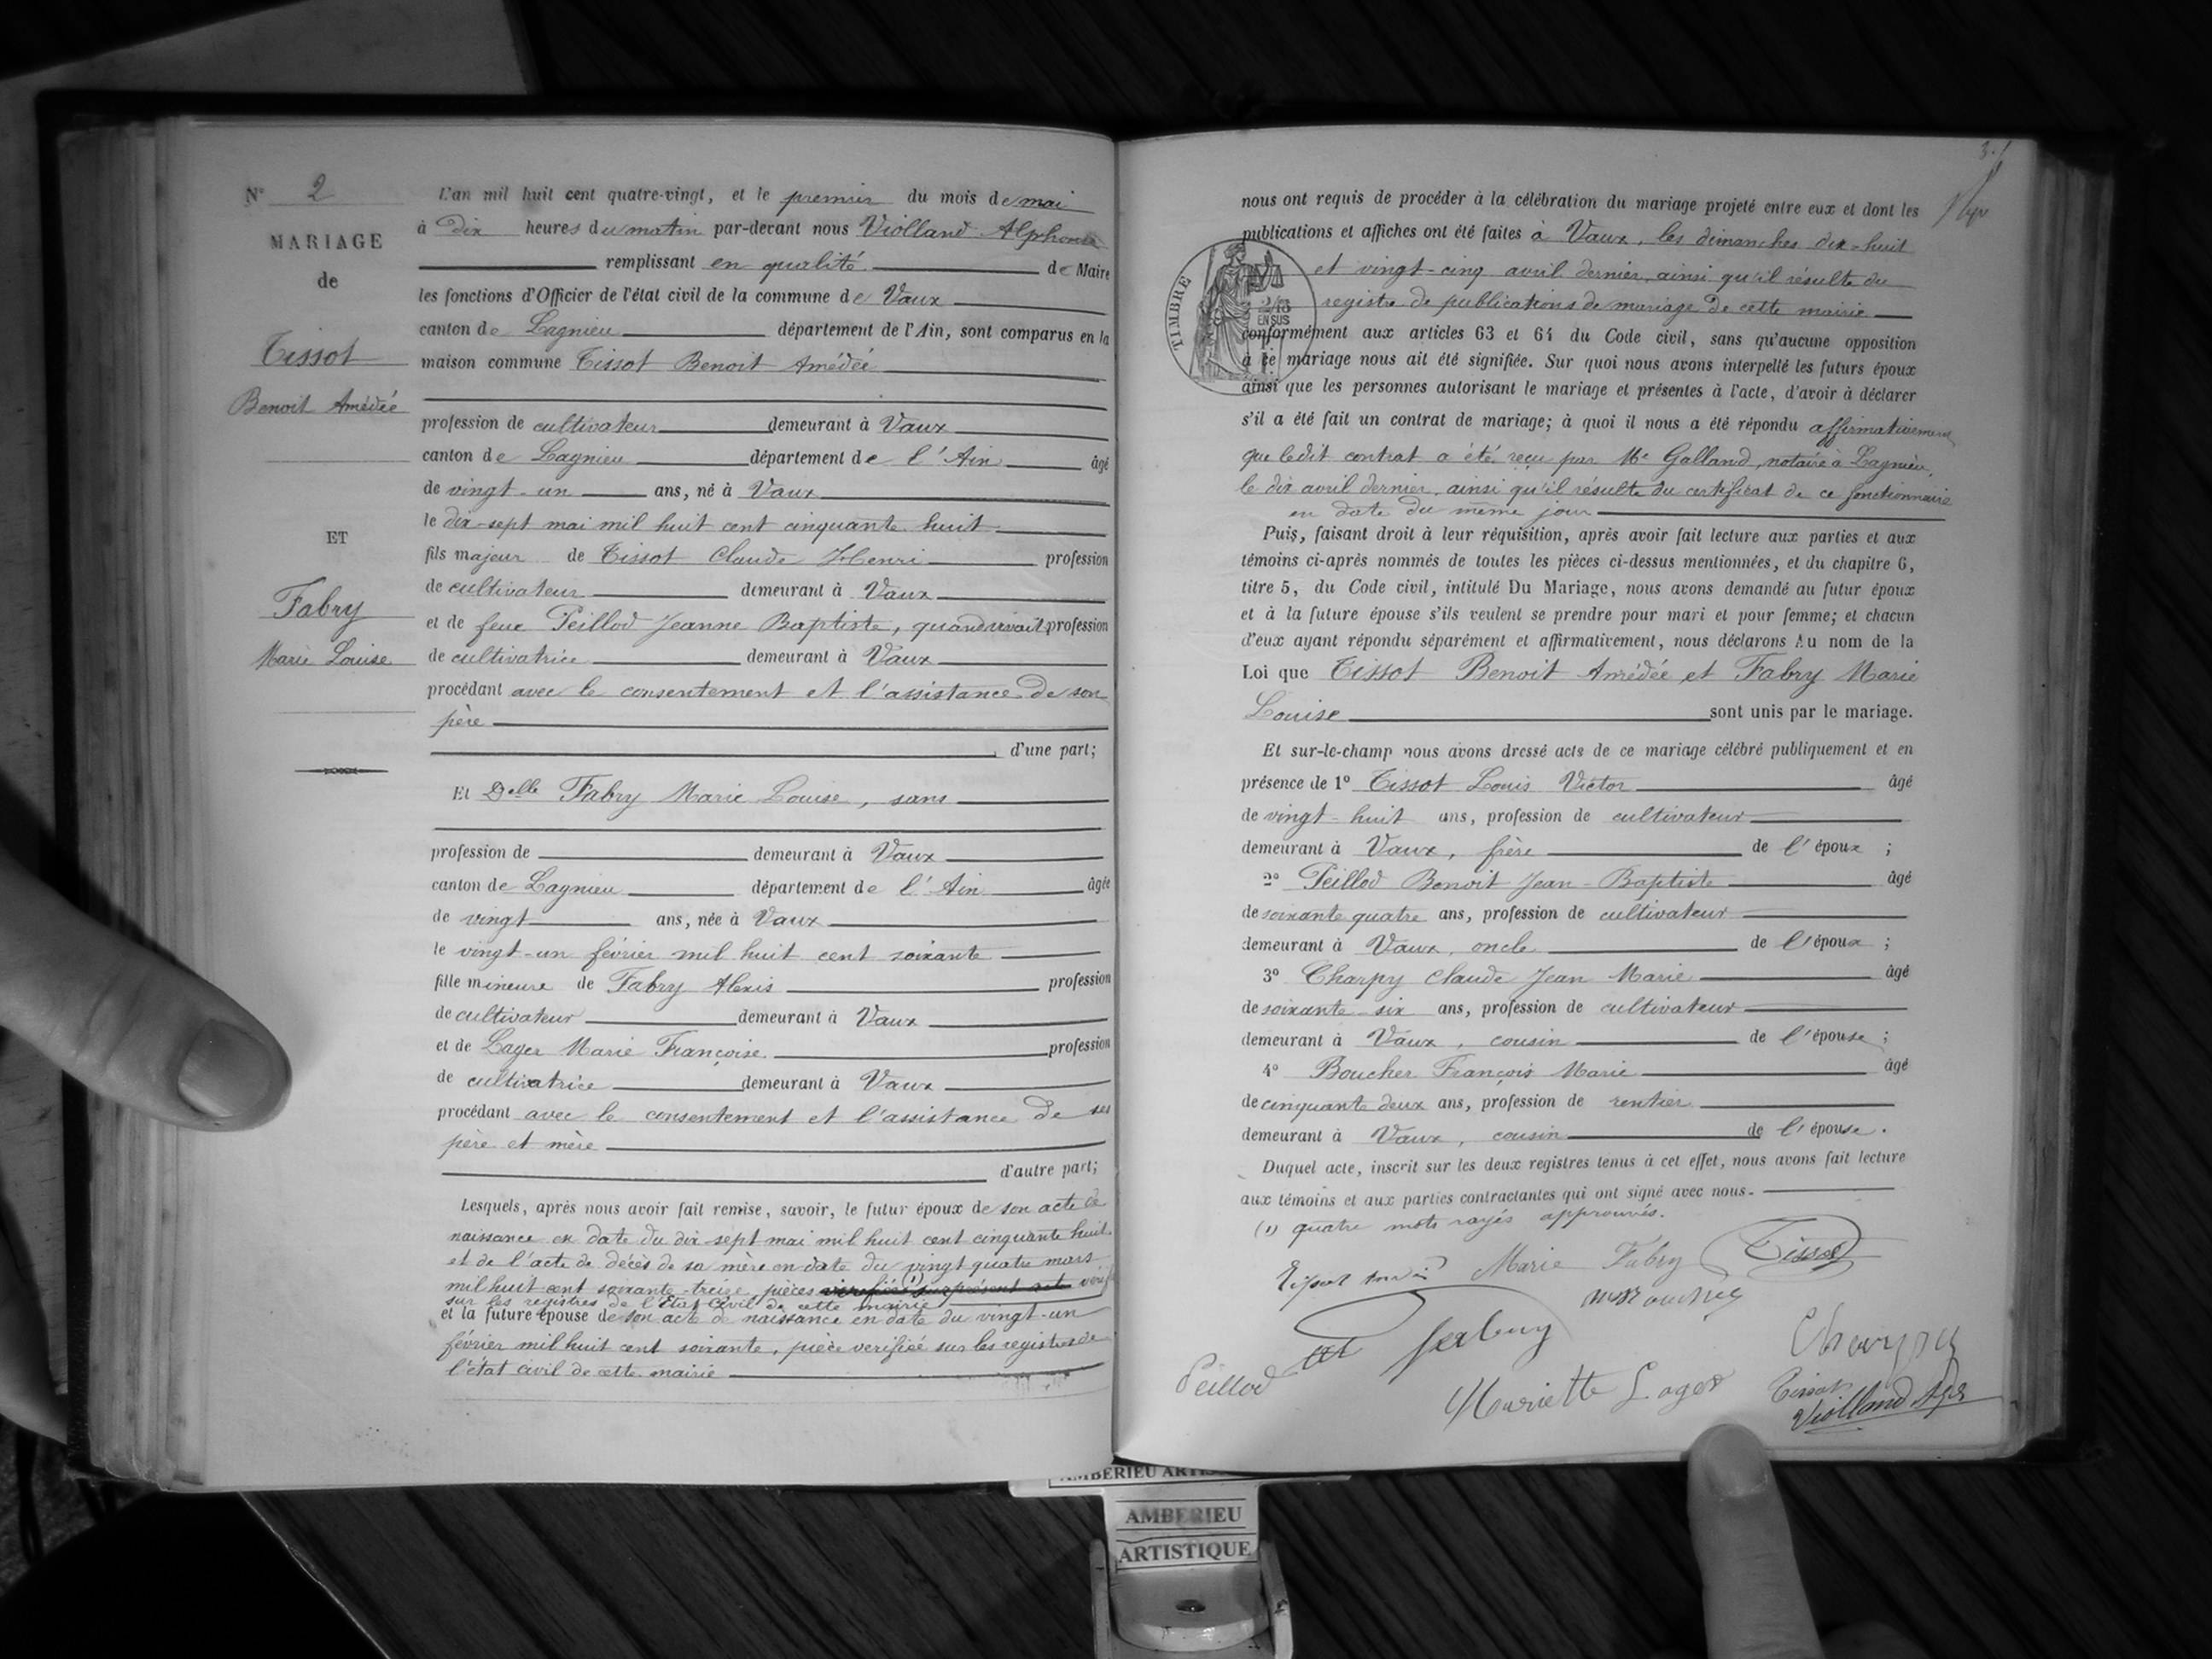 N° 2
MARIAGE
de
Tissot
Benoit Amédée
ET
Fabry
Marie Louise
L'an mil huit cent quatre-vingt, et le premier du mois de mai
à dix heures du matin par-devant nous Violland Alphonse
remplissant en qualité de Maire
les fonctions d'Officier de l'état civil de la commune de Vaux
canton de Lagnieu département de l'Ain, sont comparus en la
maison commune Tissot Benoit Amédée
profession de cultivateur demeurant à Vaux
canton de Lagnieu département de l'Ain âgé
de vingt-un ans, né à Vaux
le dix-sept mai mil huit cent cinquante huit
fils majeur de Tissot Claude Henri profession
de cultivateur demeurant à Vaux
et de feue Peillod Jeanne Baptiste, quand vivait profession
de cultivatrice demeurant à Vaux
procédant avec le consentement et l'assistance de son
père
d'une part;
Et Delle Fabry Marie Louise, sans
profession de demeurant à Vaux
canton de Lagnieu département de l'Ain âgée
de vingt ans, née à Vaux
le vingt-un février mil huit cent soixante
fille mineure de Fabry Alexis profession
de cultivateur demeurant à Vaux
et de Lager Marie Françoise profession
de cultivatrice demeurant à Vaux
procédant avec le consentement et l'assistance de ses
père et mère
d'autre part;
Lesquels, après nous avoir fait remise, savoir, le futur époux de son acte de
naissance en date du dix-sept mai mil huit cent cinquante huit
et de l'acte de décès de sa mère en date du vingt quatre mars
mil huit cent soixante-treize, pièces (1)
sur les registres de l'Etat Civil de cette mairie
et la future épouse de son acte de naissance en date du vingt-un
février mil huit cent soixante, pièce verifiée sur les registres de
l'état civil de cette mairie
3.
nous ont requis de procéder à la célébration du mariage projeté entre eux et dont les
publications et affiches ont été faites à Vaux, les dimanches dix-huit
et vingt-cinq avril dernier, ainsi qu'il résulte du
registre de publications de mariage de cette mairie
TIMBRE
2/10
EN SUS
conformément aux articles 63 et 64 du Code civil, sans qu'aucune opposition
à ce mariage nous ait été signifiée. Sur quoi nous avons interpellé les futurs époux
ainsi que les personnes autorisant le mariage et présentes à l'acte, d'avoir à déclarer
s'il a été fait un contrat de mariage; à quoi il nous a été répondu affirmativement
que ledit contrat a été reçu par Me Galland, notaire à Lagnieu,
le dix avril dernier, ainsi qu'il résulte du certificat de ce fonctionnaire
en date du même jour
Puis, faisant droit à leur réquisition, après avoir fait lecture aux parties et aux
témoins ci-après nommés de toutes les pièces ci-dessus mentionnées, et du chapitre 6,
titre 5, du Code civil, intitulé Du Mariage, nous avons demandé au futur époux
et à la future épouse s'ils veulent se prendre pour mari et pour femme; et chacun
d'eux ayant répondu séparément et affirmativement, nous déclarons Au nom de la
Loi que Tissot Benoit Amédée et Fabry Marie
Louise sont unis par le mariage.
Et sur-le-champ nous avons dressé acts de ce mariage célébré publiquement et en
présence de 1° Tissot Louis Victor âgé
de vingt-huit ans, profession de cultivateur
demeurant à Vaux, frère de l'époux ;
2° Peillod Benoit Jean-Baptiste âgé
de soixante quatre ans, profession de cultivateur
demeurant à Vaux, oncle de l'époux ;
3° Charpy Claude Jean Marie âgé
de soixante-six ans, profession de cultivateur
demeurant à Vaux, cousin de l'épouse ;
4° Boucher François Marie âgé
de cinquante deux ans, profession de rentier
demeurant à Vaux, cousin de l'épouse.
Duquel acte, inscrit sur les deux registres tenus à cet effet, nous avons fait lecture
aux témoins et aux parties contractantes qui ont signé avec nous.
(1) quatre mots rayés approuvés.
Marie Fabry Tissot
Charpy
Peillod
Mariette Lager
Tissot
Violland
AMBERIEU
AMBERIEU
ARTISTIQUE